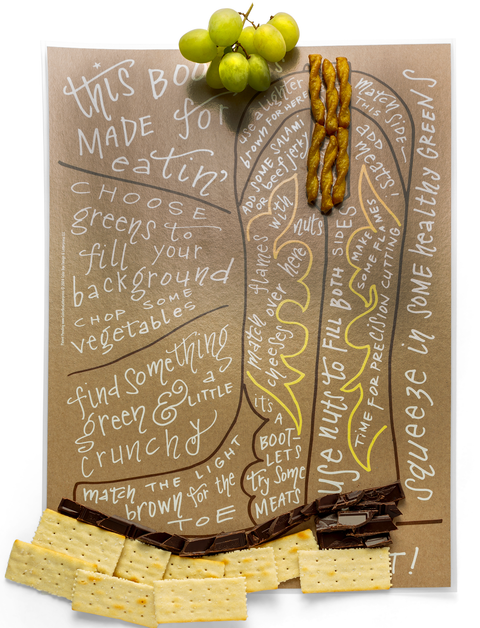 this BOO
MADE for
eatin'
CHOOSE
greens to
fill your
background
CHOP SOME
vegetables
find something
green & a LITTLE
crunchy
match THE LIGHT
brown for the
TOE
use a lighter
brown FOR HERE
ADD SOME SALAMI
OR beef jerky
with
nuts
match flames
cheeses over here
it's
A
BOOT-
LET'S
try some
MEATS
match SIDE-
THIS
ADD
meats!
use nuts to FILL BOTH SIDES
MAKE SOME FLAMES
TIME FOR PRECISION CUTTING
squeeze in SOME healthy GREENS
T!